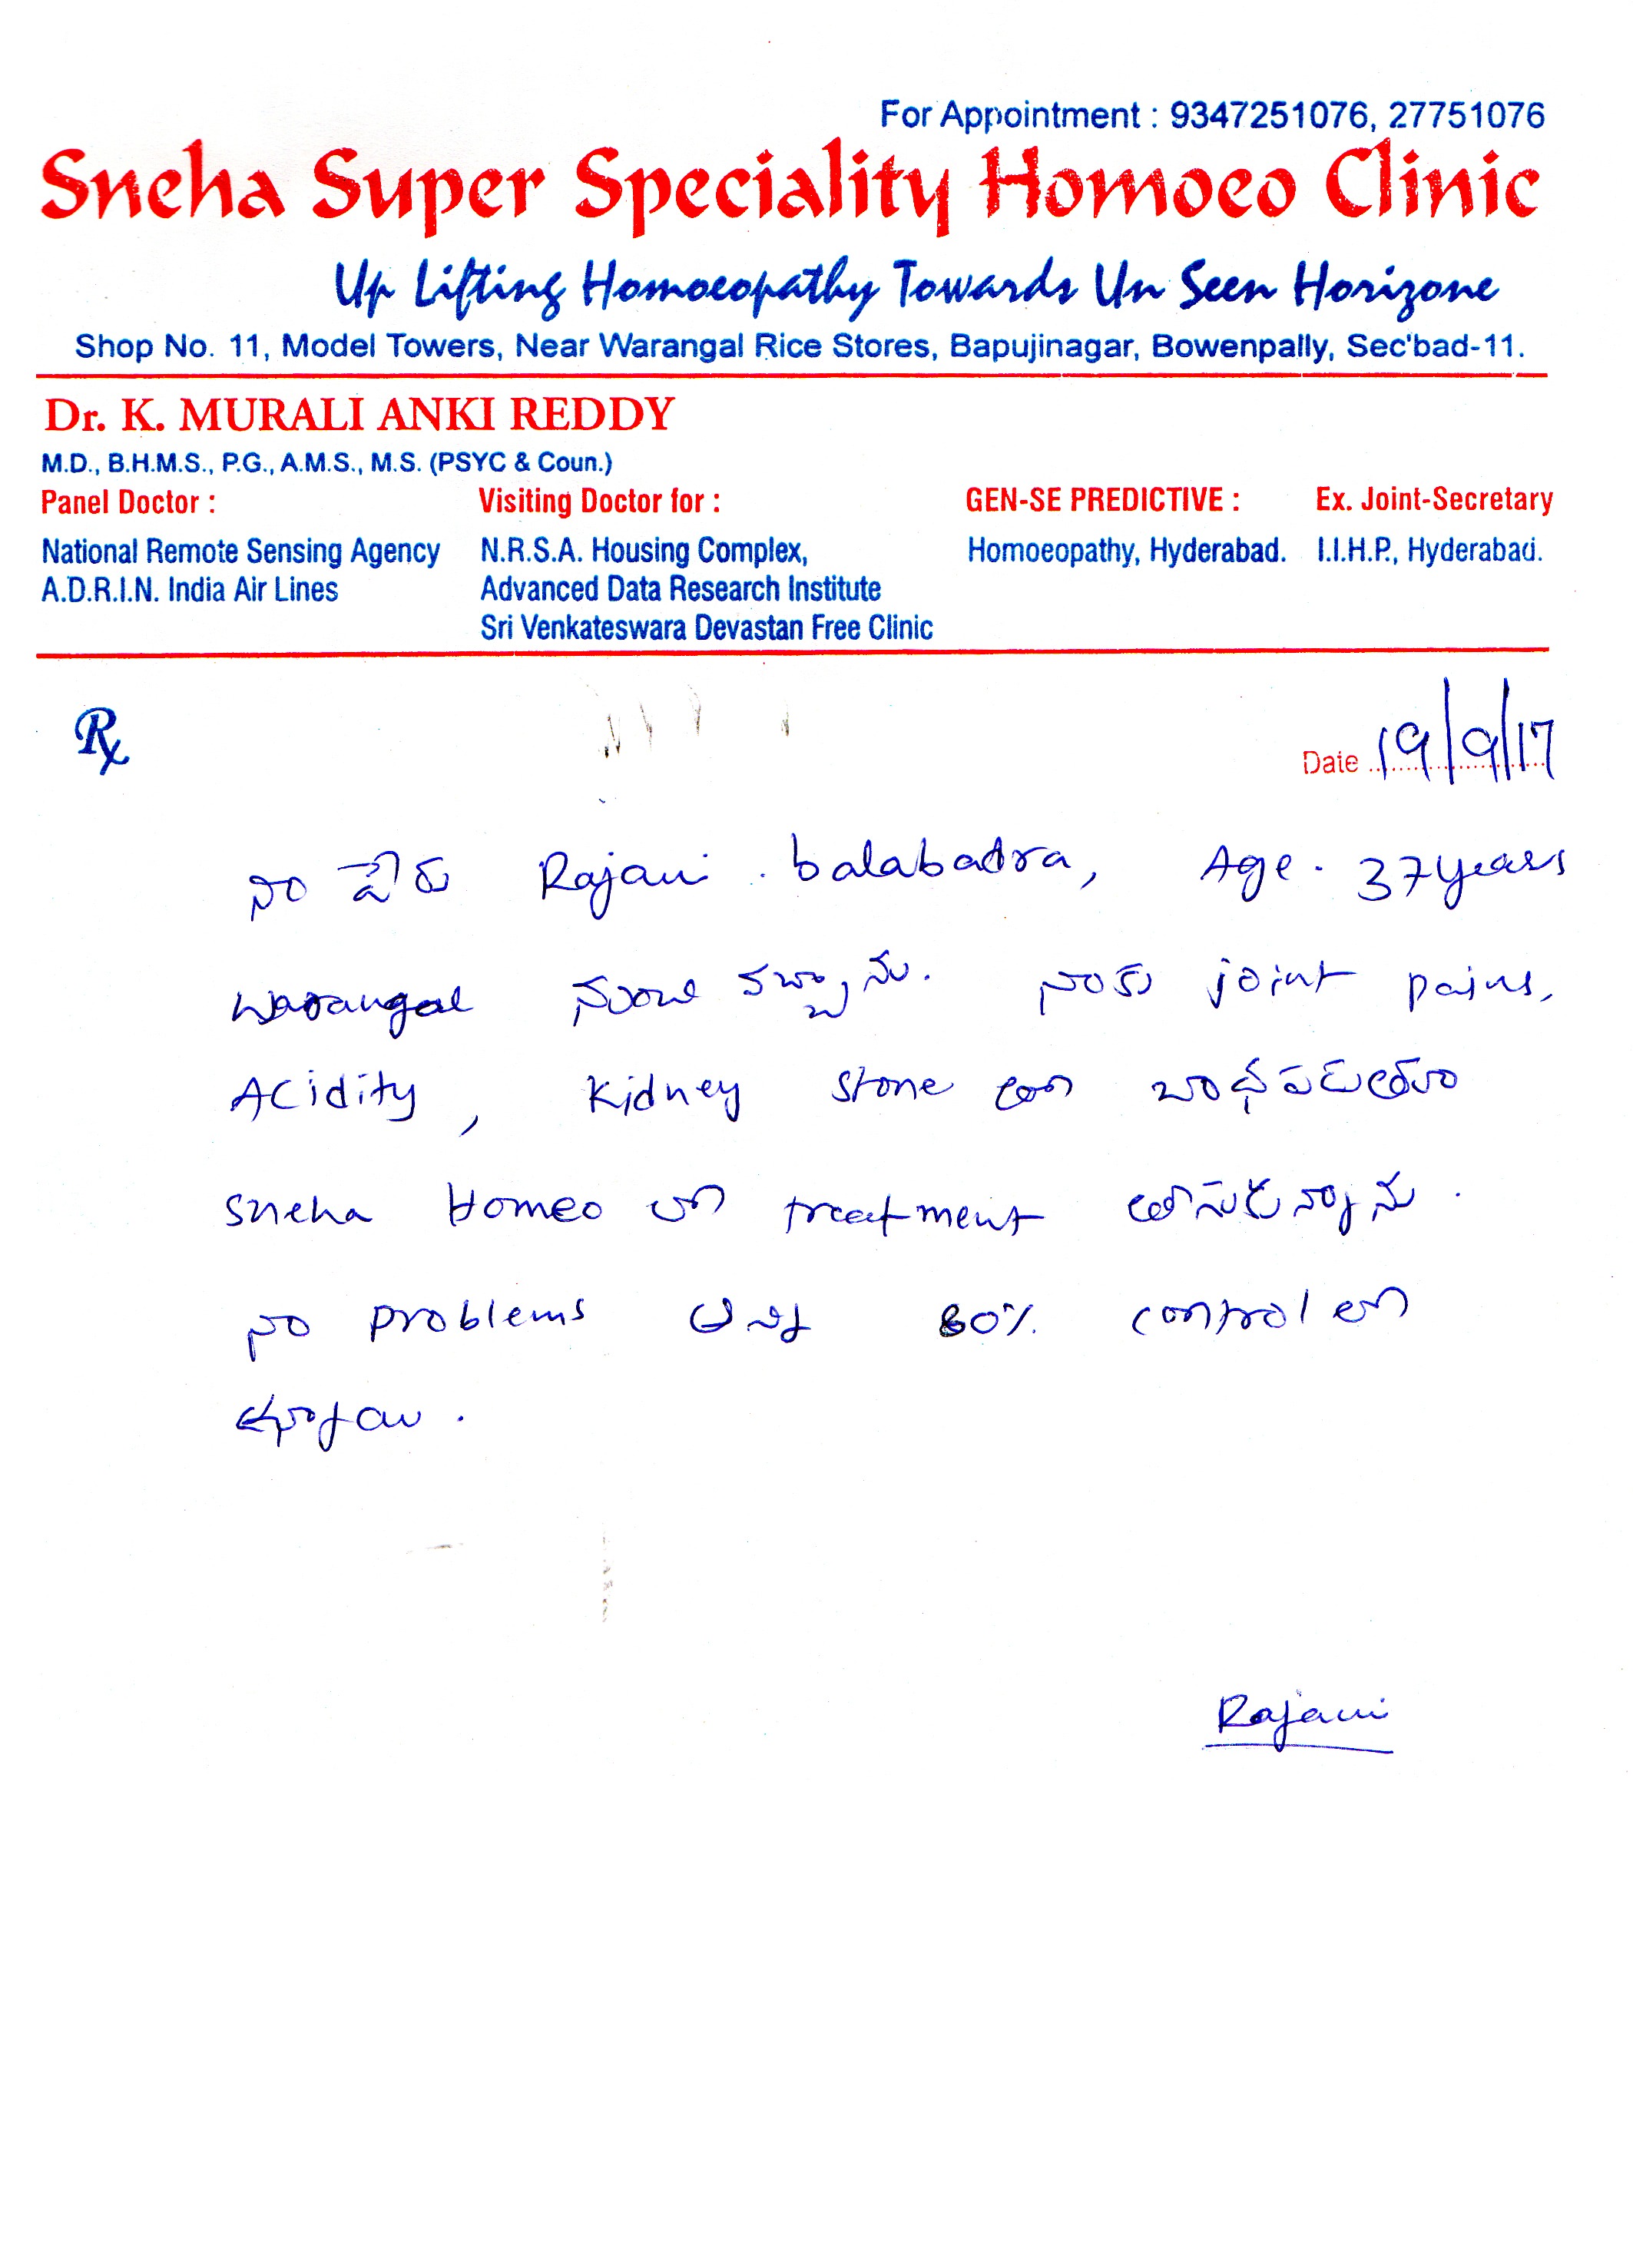 For Appointment : 9347251076, 27751076
Sneha Super Speciality Homoeo Clinic
Up Lifting Homoeopathy Towards Un Seen Horizone
Shop No. 11, Model Towers, Near Warangal Rice Stores, Bapujinagar, Bowenpally, Sec'bad-11.
Dr. K. MURALI ANKI REDDY
M.D., B.H.M.S., P.G., A.M.S., M.S. (PSYC & Coun.)
Panel Doctor : Visiting Doctor for : GEN-SE PREDICTIVE : Ex. Joint-Secretary
National Remote Sensing Agency N.R.S.A. Housing Complex, Homoeopathy, Hyderabad. I.I.H.P., Hyderabad.
A.D.R.I.N. India Air Lines Advanced Data Research Institute
Sri Venkateswara Devastan Free Clinic
Rx Date 19/9/17
నా పేరు Rajani . balabadra, Age . 37 years
Warangal నుంచి వచ్చాను. నాకు joint pains,
Acidity, Kidney stone తో బాధపడుతూ
Sneha Homeo లో treatment తీసుకున్నాను .
నా problems అన్ని 80% control లో
ఉన్నాయి .
Rajani